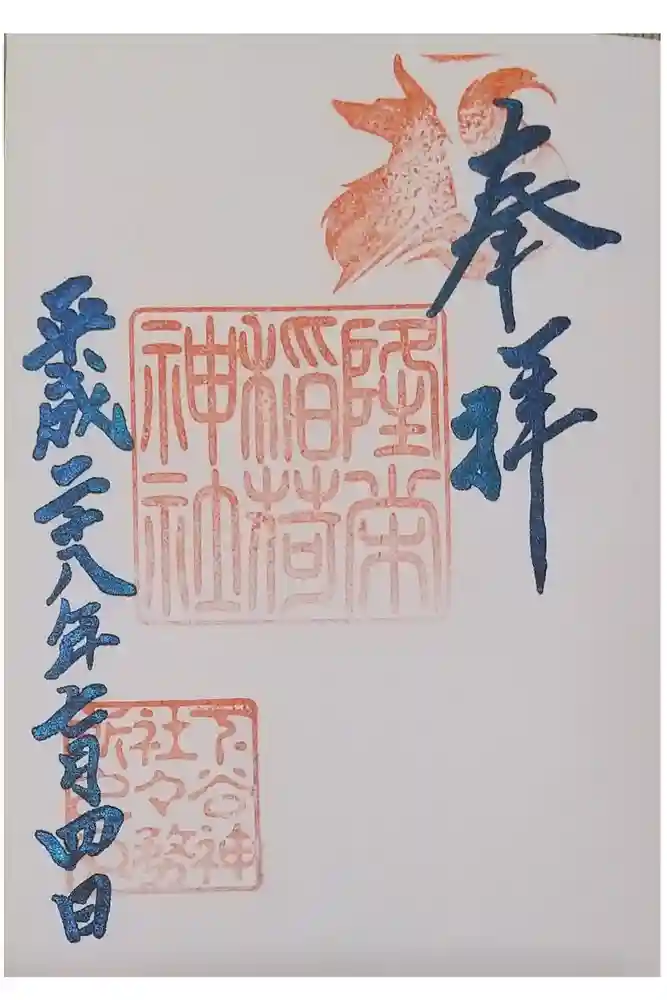 奉拝
隆栄
稲荷
神社
平成二十八年七月四日
下谷神
社々務
所之印